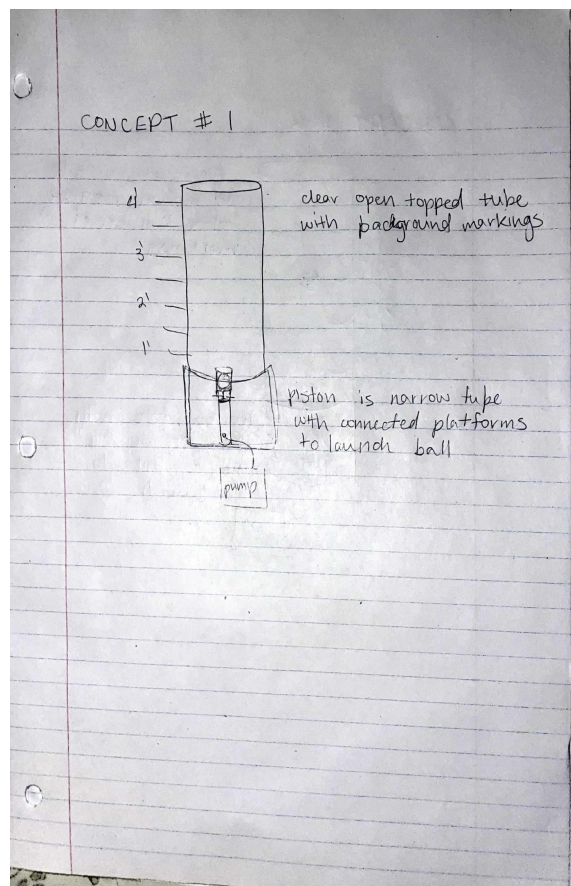 CONCEPT # 1
4'
clear open topped tube
with background markings
3'
2'
1'
piston is narrow tube
with connected platforms
to launch ball
pump